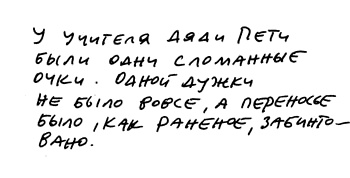 У УЧИТЕЛЯ ДЯДИ ПЕТИ
БЫЛИ ОДНИ СЛОМАННЫЕ
ОЧКИ. ОДНОЙ ДУЖКИ
НЕ БЫЛО ВОВСЕ, А ПЕРЕНОСЬЕ
БЫЛО, КАК РАНЕНОЕ, ЗАБИНТО-
ВАНО.